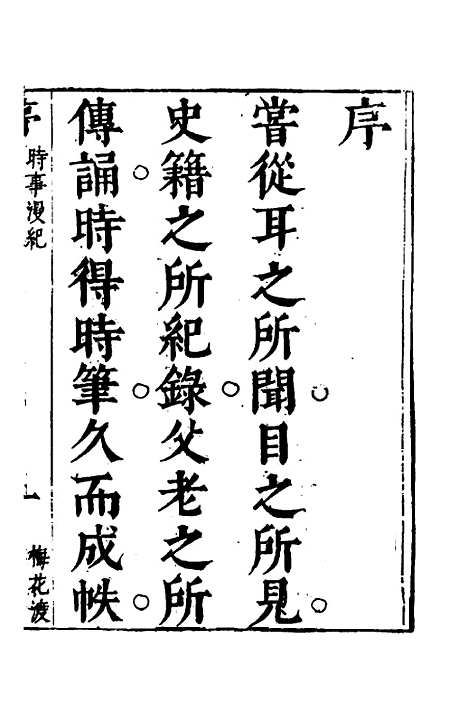 序
嘗從耳之所聞目之所見
史籍之所紀錄父老之所
傳誦時得時筆久而成帙
序 時事漫紀 一 梅花渡